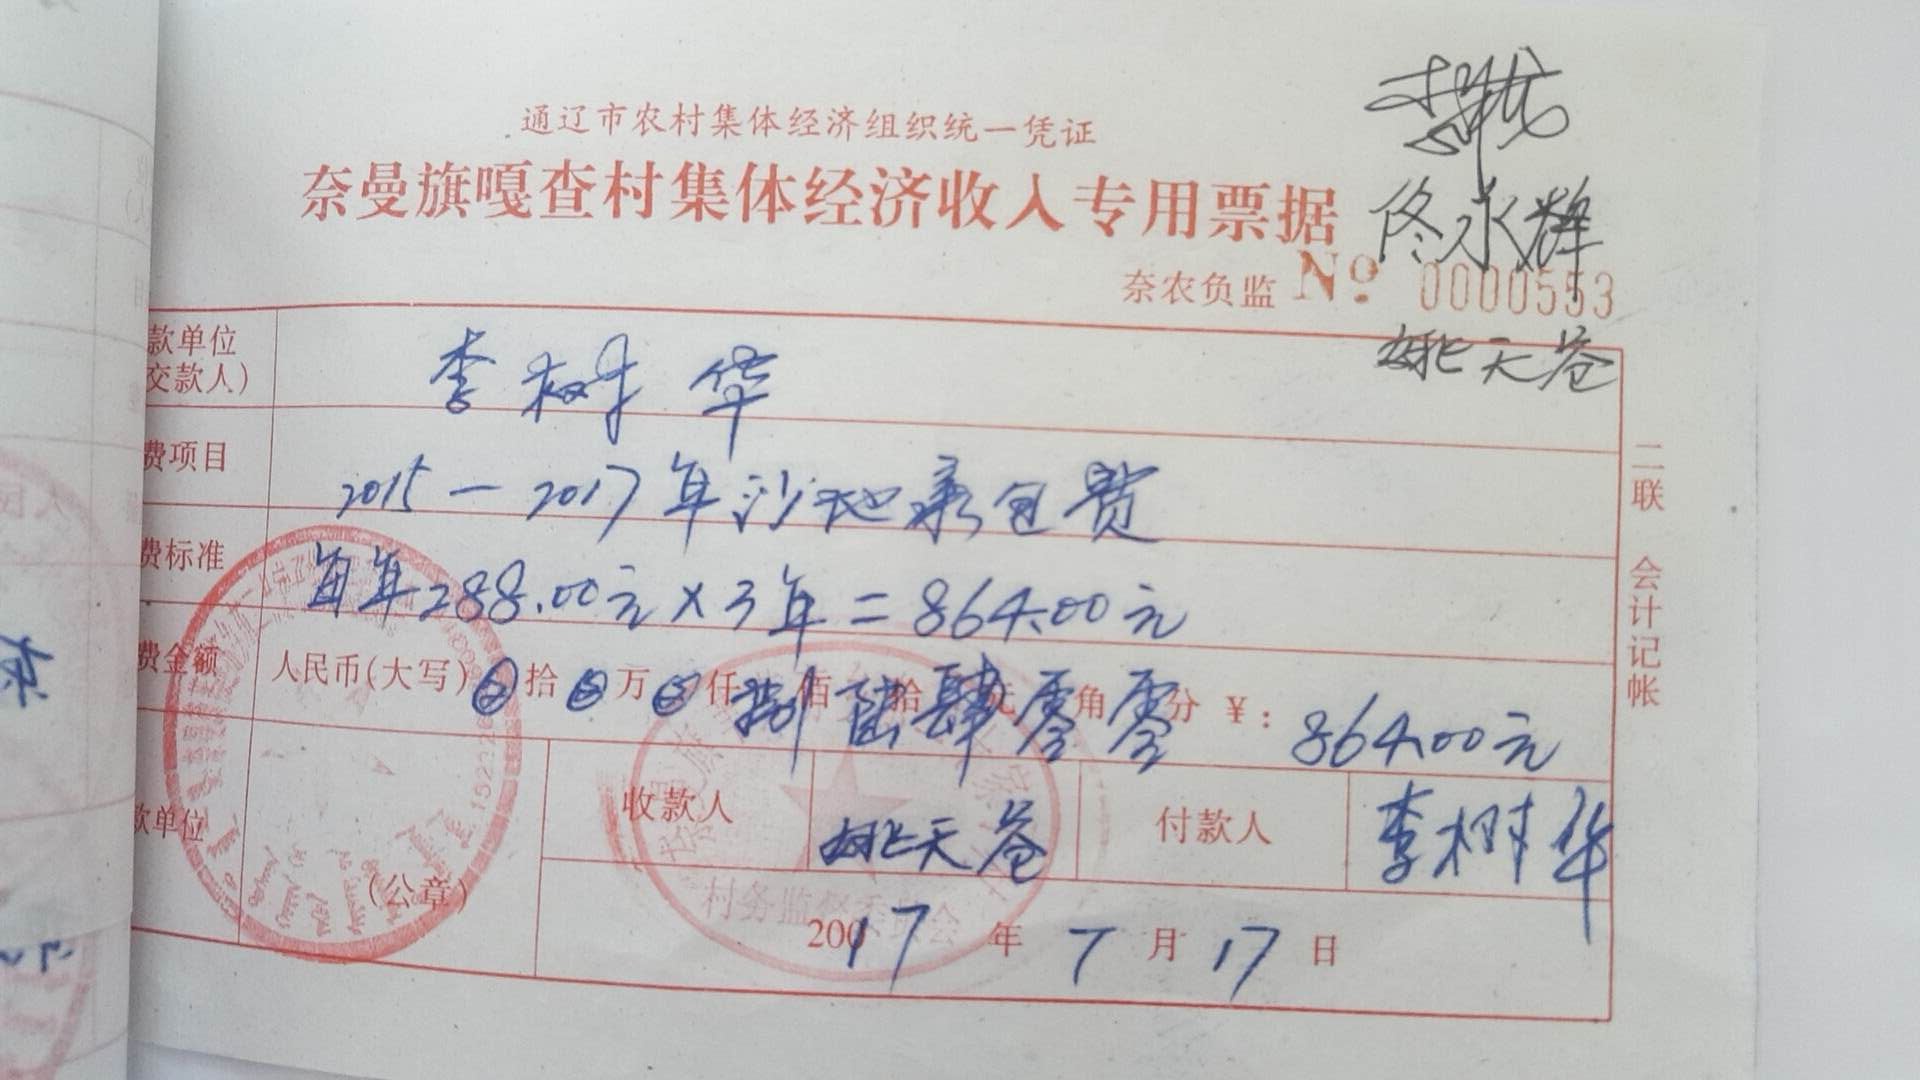 通辽市农村集体经济组织统一凭证
奈曼旗嘎查村集体经济收入专用票据
佟永辉
奈农负监 № 0000553
姚天苍
款单位
交款人)
李树华
费项目
2015-2017年沙地承包费
费标准
每年288.00元×3年=864.00元
费金额
人民币(大写) 拾 万 仟 捌佰 陆拾 肆元 零角 零分 ¥: 864.00元
款单位
(公章)
收款人 姚天苍 付款人 李树华
村务监督委员会
20017年7月17日
二联 会计记帐